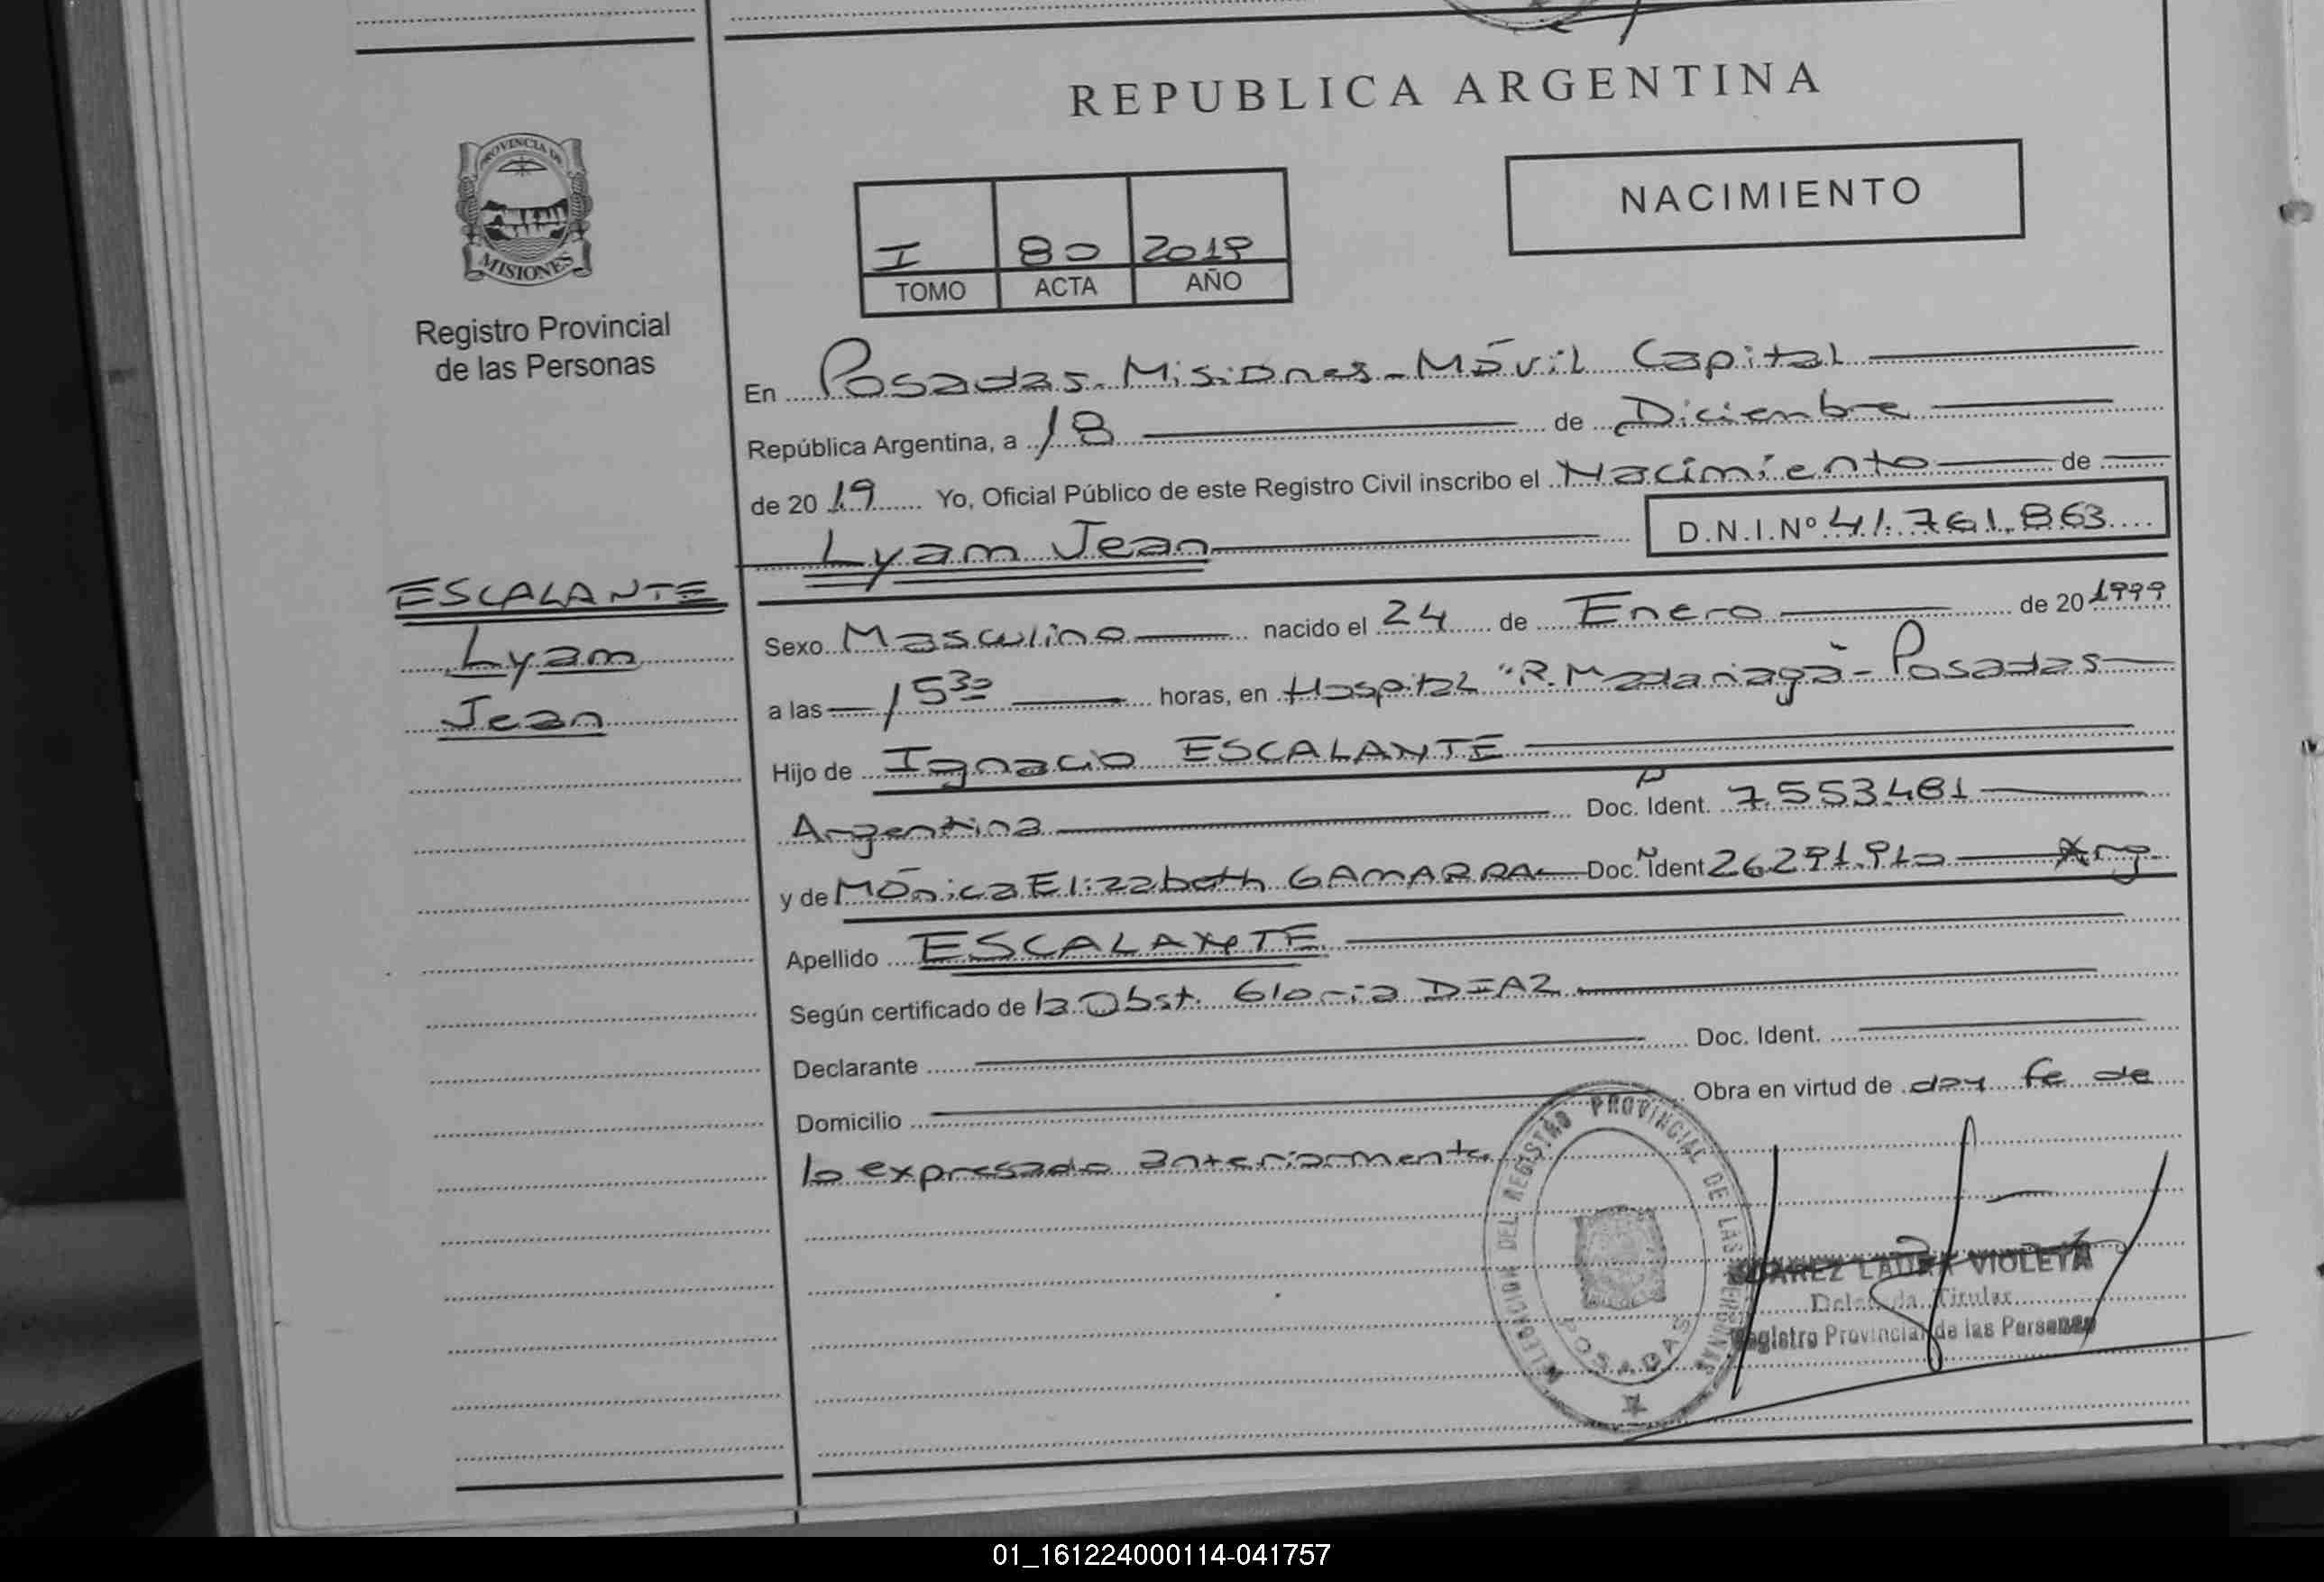 REPUBLICA ARGENTINA
PROVINCIA DE
MISIONES
Registro Provincial
de las Personas
NACIMIENTO
I 80 2019
TOMO ACTA AÑO
En Posadas - Misiones - Móvil Capital
República Argentina, a 18 de Diciembre
de 2019 Yo, Oficial Público de este Registro Civil inscribo el Nacimiento de
Lyam Jean D.N.I.Nº 41.761.863
ESCALANTE
Lyam
Jean
Sexo Masculino nacido el 24 de Enero de 20 1999
a las 15 30 horas, en Hospital "R. Madariaga" - Posadas
Hijo de Ignacio ESCALANTE
Argentina Doc. Ident. 7.553.481
y de Mónica Elizabeth GAMARRA Doc. Ident 26.291.910 Arg.
Apellido ESCALANTE
Según certificado de la Obst. Gloria DIAZ
Declarante Doc. Ident.
Domicilio Obra en virtud de doy fe de
lo expresado anteriormente
DELEGACION DEL REGISTRO PROVINCIAL DE LAS PERSONAS
POSADAS
SUAREZ LAURA VIOLETA
Delegada Titular
Registro Provincial de las Personas
01_161224000114-041757